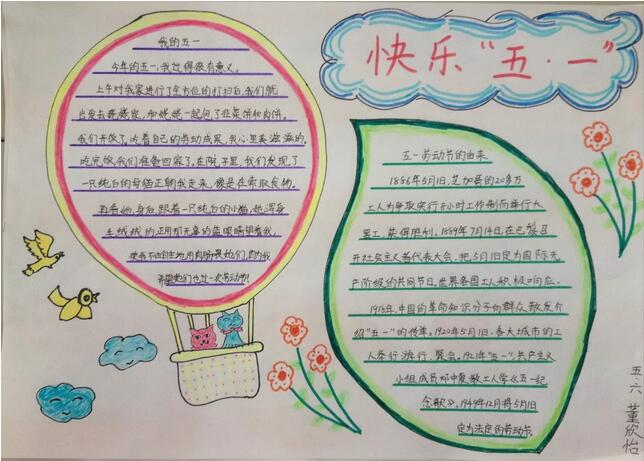 快乐“五·一”
我的五一
今年的五一,我过得很有意义。
上午对我家进行了全方位的打扫后,我们就
出发去姥姥家,和姥姥一起包了韭菜饼和肉饼。
我们开饭了,吃着自己的劳动成果,我心里美滋滋的。
吃完饭,我们准备回家了。在院子里,我们发现了
一只纯白的母猫正朝我走来,像是在索取食物。
再看她身后,跟着一只纯白的小猫,她浑身
毛绒绒的,正用那无辜的蓝眼睛望着我,
使我不由自主地用肉肠喂她们,
希望她们也过一次劳动节!
五一劳动节的由来
1886年5月1日,芝加哥的20多万
工人为争取实行8小时工作制而举行大
罢工,获得胜利。1889年7月14日,在巴黎召
开社会主义者代表大会,把5月1日定为国际无
产阶级的共同节日,世界各国工人积极响应。
1918年,中国的革命知识分子向群众散发介
绍“五一”的传单。1920年5月1日,各大城市的工
人举行游行、聚会。1921年“五一”,共产主义
小组成员邓中夏教工人学《五一纪
念歌》。1949年12月将5月1日
定为法定的劳动节。
五.六 董欣怡